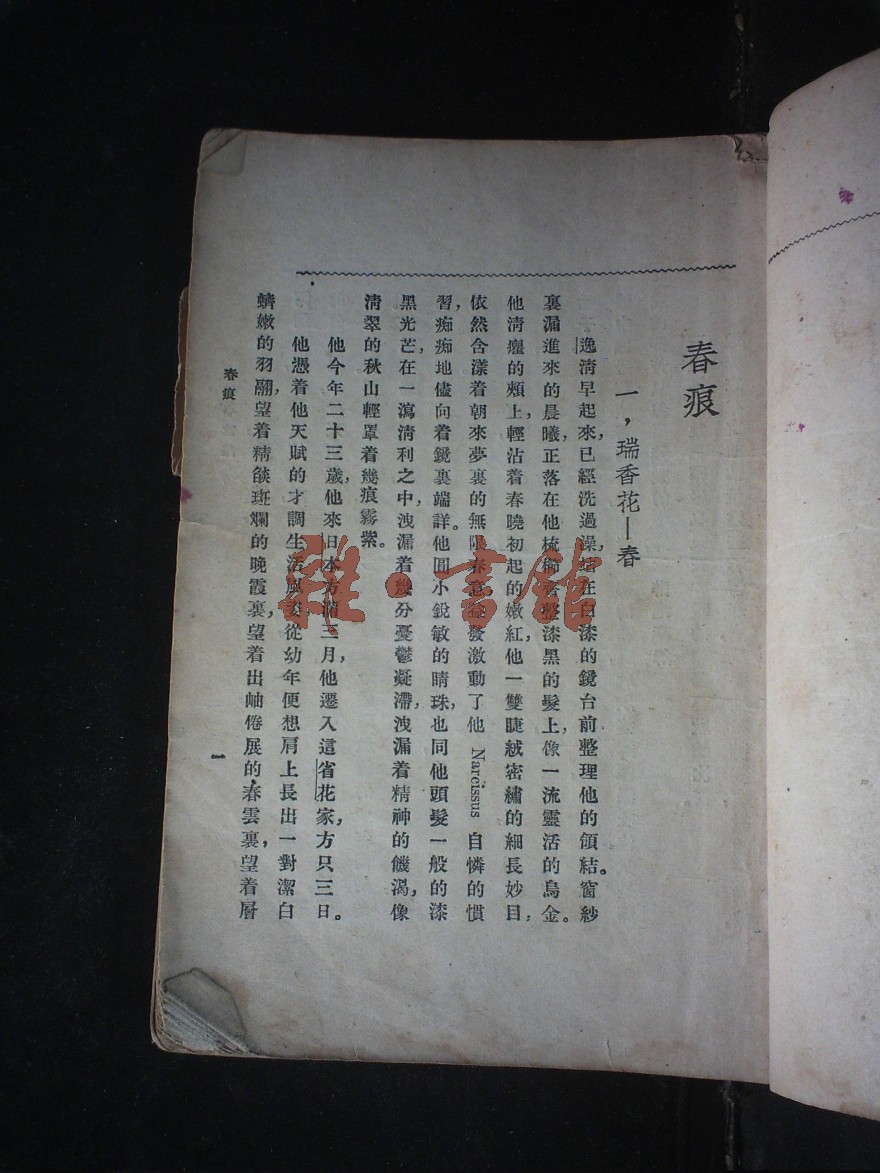 春痕
一，瑞香花—春
逸淸早起來，已經洗過澡，站在白漆的鏡台前整理他的領結。窗紗
裏漏進來的晨曦，正落在他梳櫛齊整漆黑的髮上，像一流靈活的烏金。
他淸癯的頰上，輕沾着春曉初起的嫩紅，他一雙睫絨密繡的細長妙目，
依然含漾着朝來夢裏的無限春意，益發激動了他 Narcissus 自憐的慣
習，痴痴地儘向着鏡裏端詳。他圓小銳敏的睛珠，也同他頭髮一般的漆
黑光芒，在一瀉淸利之中，洩漏着幾分憂鬱凝滯，洩漏着精神的饑渴，像
淸翠的秋山輕罩着幾痕霧紫。
他今年二十三歲，他來日本方滿三月，他遷入這省花家，方只三日。
他憑着他天賦的才調生活風姿，從幼年便想肩上長出一對潔白
蠐嫩的羽翮，望着精燄斑斕的晚霞裏，望着出岫倦展的春雲裏，望着層
春痕
一
雜·書館